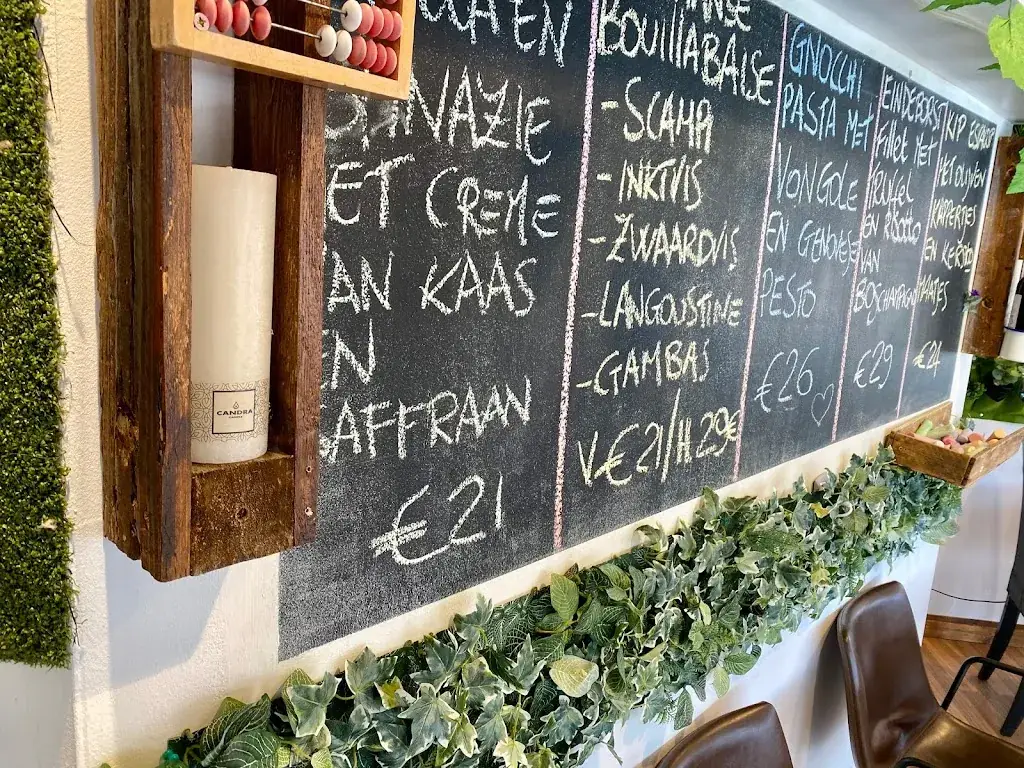 CANDRA
EN
ET CREME
AN KAAS
EN
SAFFRAAN
€21
BOUILLABAISE
-SCAMPI
-INKTVIS
-ZWAARDVIS
-LANGOUSTINE
-GAMBAS
V€21/H29€
GNOCCHI
PASTA MET
VONGOLE
EN GENOVESE
PESTO
€26
EENDEBORST
FILLET MET
TRUFEL
EN RISOTTO
VAN
BOSCHAMPIGN
€29
KIP
MET OLIJVEN
KAPPERTJES
EN KERS
TOMATJES
€24